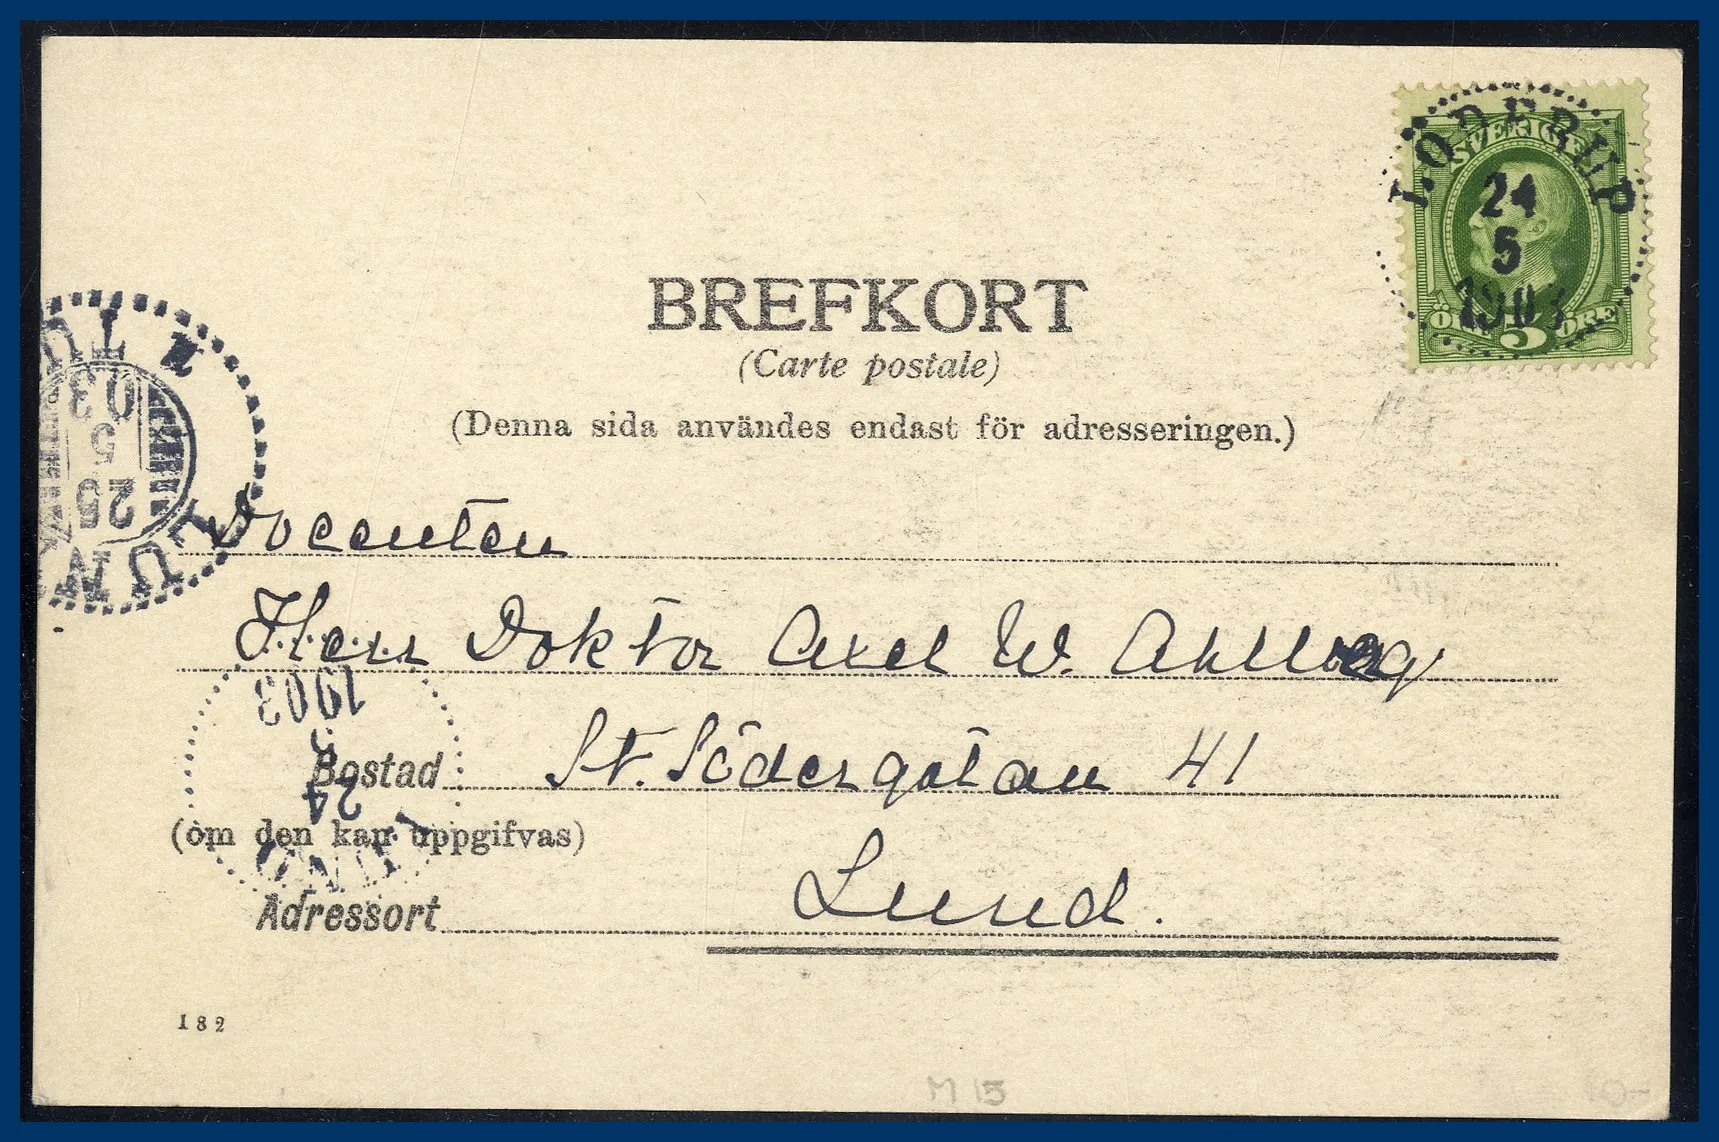 LÖDERUP
SVERIGE
24
5
1903
ÖRE 5 ÖRE
BREFKORT
(Carte postale)
(Denna sida användes endast för adresseringen.)
LUND
25
5
03
1 TUR
Docenten
Herr Doktor Axel W. Ahlberg
1903
5
24
LUND
Bostad St. Södergatan 41
(om den kan uppgifvas)
Adressort Lund.
182
M 15